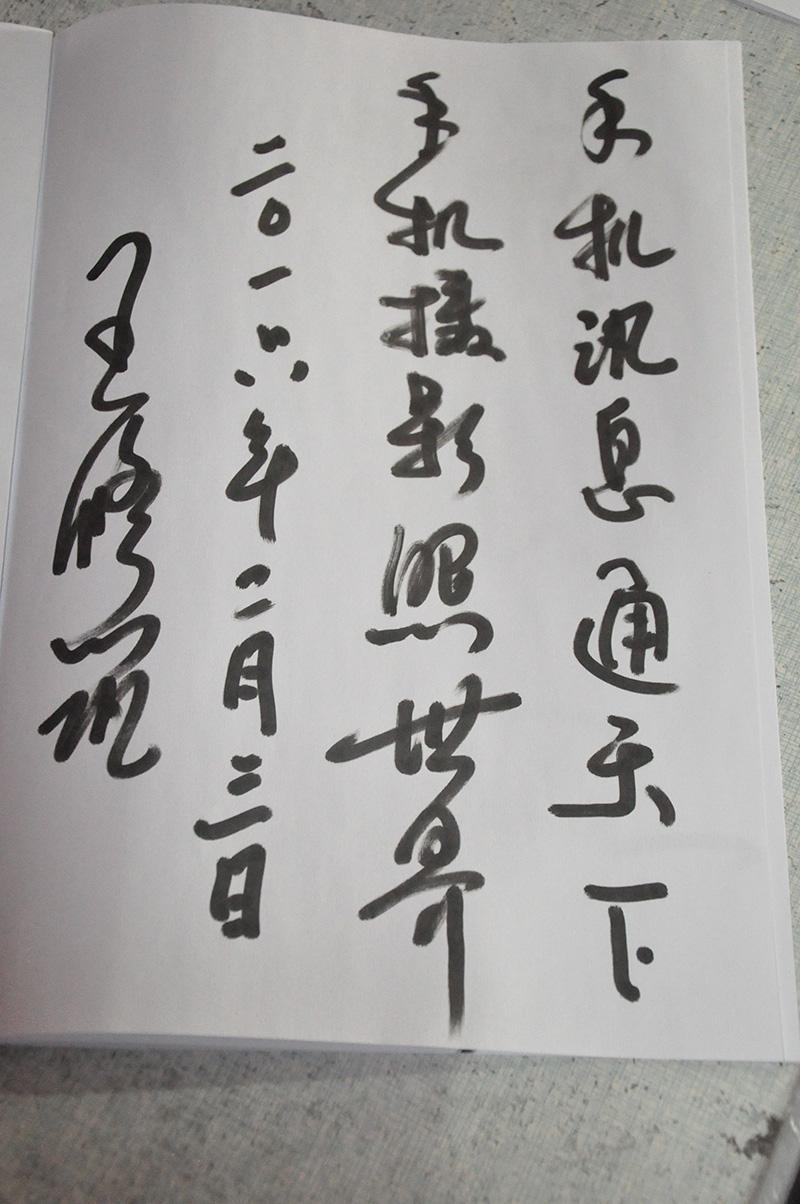 手机讯息通天下
手机摄影照世界
二〇一六年二月三日
王